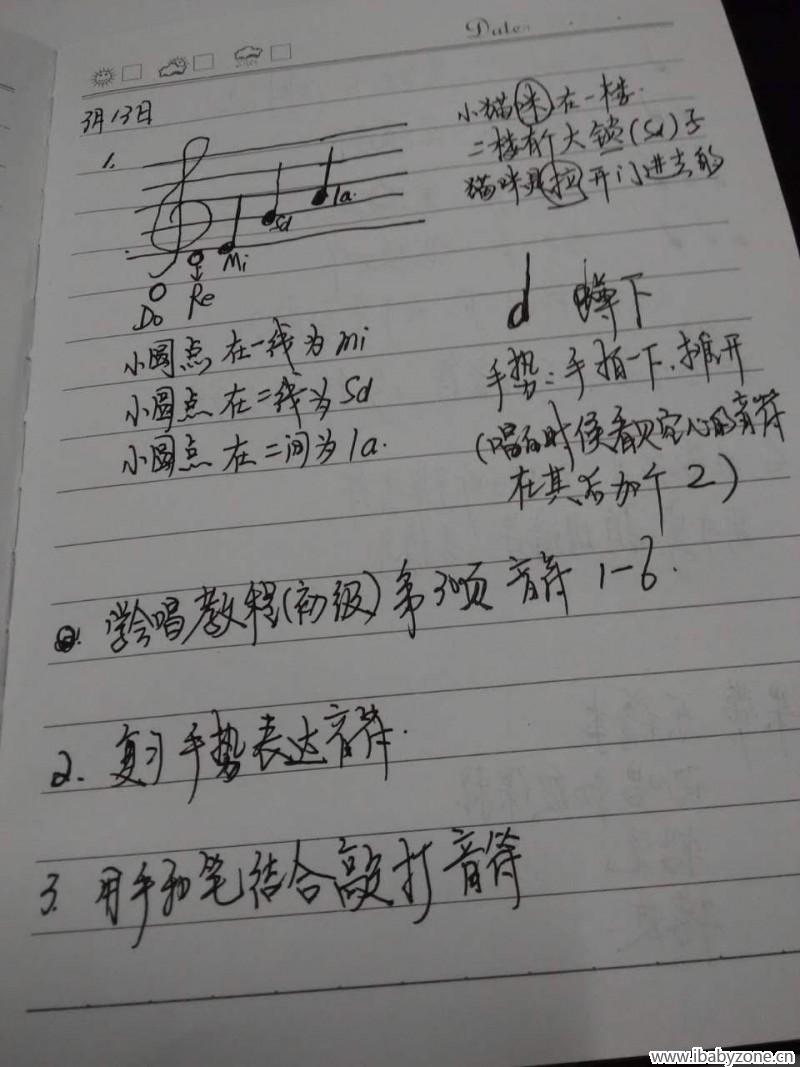 Date:
3月13日
1.
小猫咪在一楼.
二楼有个大锁(Sol)子
猫咪是拉开门进去的
la.
Sol
Mi
Re
Do
小圆点在一线为mi
小圆点在二线为Sol
小圆点在二间为la.
蹲下
手势:手拍一下.摊开
(唱的时侯看见空心的音符
在其后加个2)
学会唱教程(初级)第3页音符1-6.
2. 复习手势表达音符.
3. 用手和笔结合敲打音符
www.ibabyzone.cn